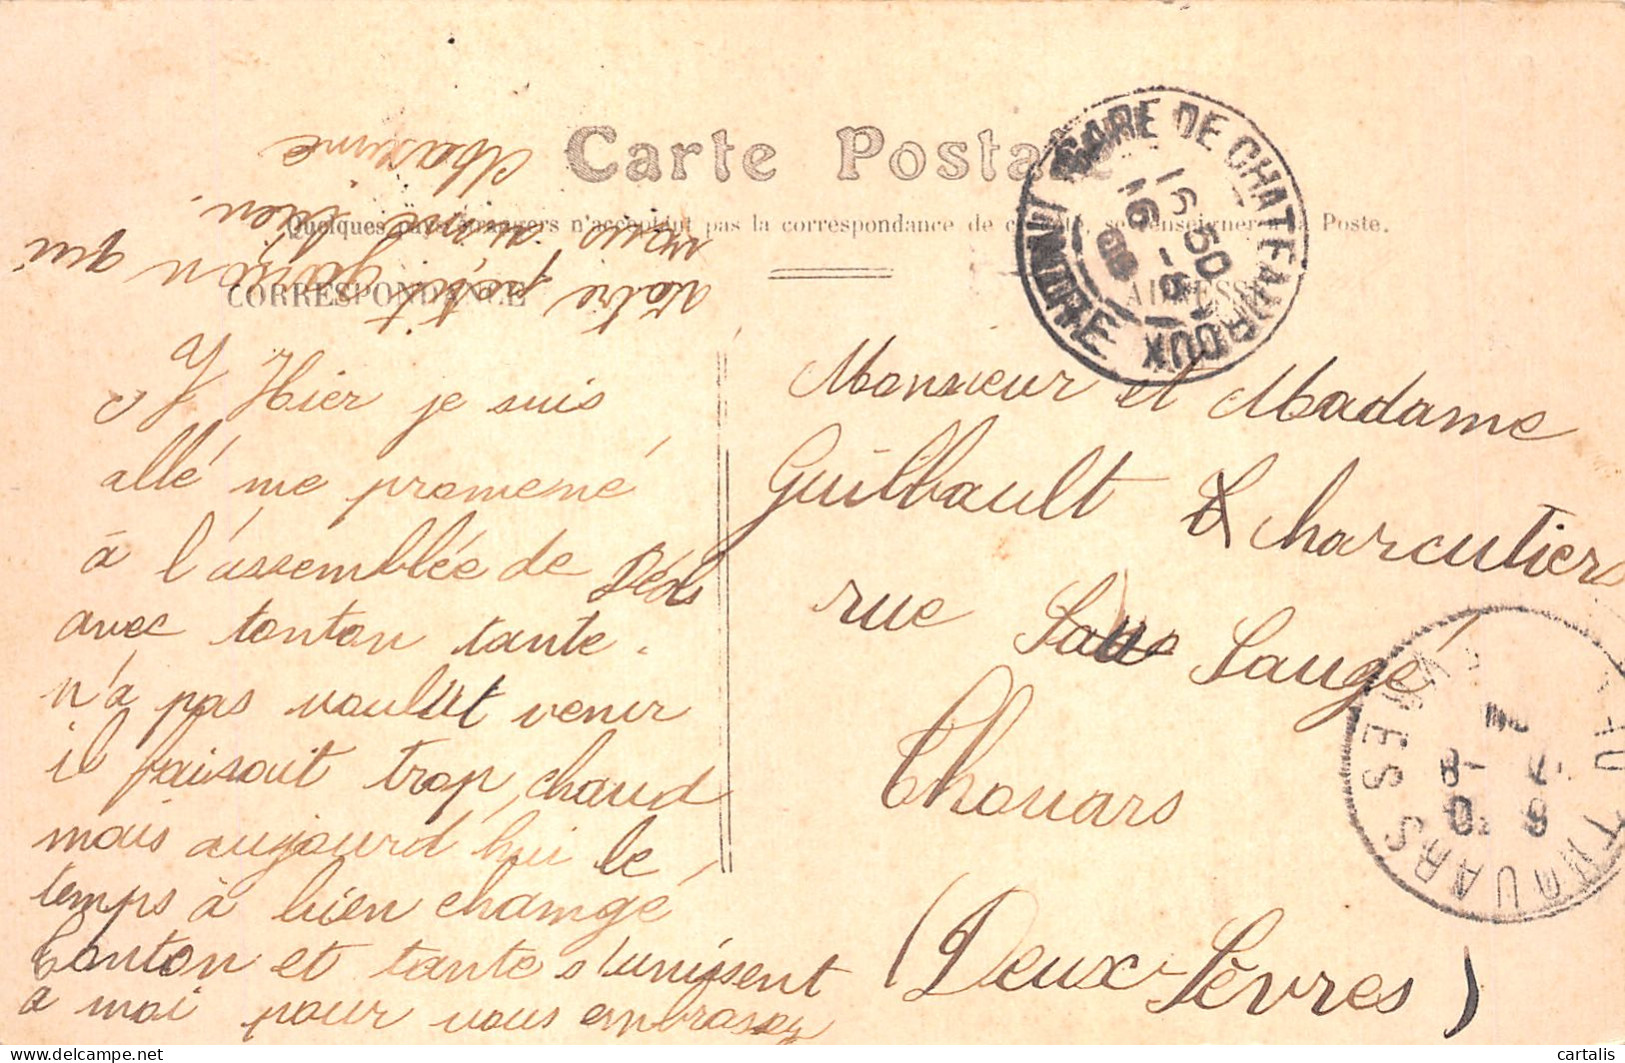 Carte Postale
Quelques pays étrangers n'acceptent pas la correspondance de ce côté, se renseigner à la Poste.
CORRESPONDANCE
ADRESSE
Hier je suis
allé me promené
à l'assemblée de Déols
avec tonton tante
n'a pas voulut venir
il faisait trop chaud
mais aujourd'hui le
temps à bien changé
tonton et tante s'unissent
a moi pour vous embrasser
Votre petit garçon qui
vous aime bien.
Maxime
Monsieur et Madame
Guilbault Charcutiers
rue Saugé
Thouars
(Deux-Sèvres)
GARE DE CHATEAUROUX
INDRE
16 50
16 -8
09
THOUARS
SÈVRES
7 -8
09
cartalis
delcampe.net